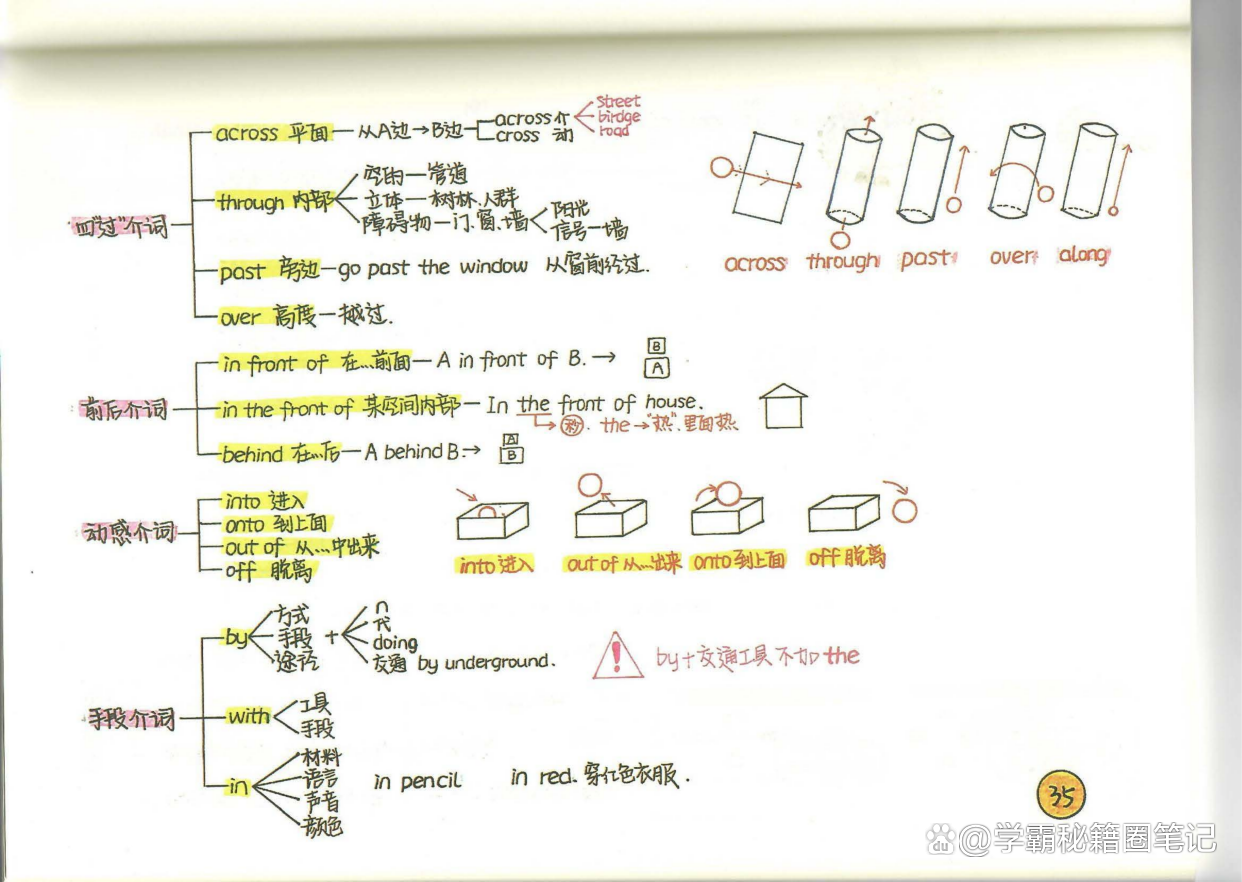 四"过"介词
across 平面 — 从A边→B边
across 介
cross 动
street
birdge
road
through 内部
空的一管道
立体一树林、人群
障碍物一门、窗、墙
阳光
信号一墙
past 旁边 — go past the window 从窗前经过.
over 高度 — 越过.
across through past over along
前后介词
in front of 在...前面 — A in front of B. →
B
A
in the front of 某空间内部 — In the front of house.
秒. the→"热".里面热
behind 在...后 — A behind B. →
A
B
动感介词
into 进入
onto 到上面
out of 从...中出来
off 脱离
into 进入 out of 从...出来 onto 到上面 off 脱离
手段介词
by
方式
手段
途径
+
n
代
doing
交通 by underground.
! by+交通工具不加 the
with
工具
手段
in
材料
语言
声音
颜色
in pencil in red. 穿红色衣服.
35
@学霸秘籍圈笔记